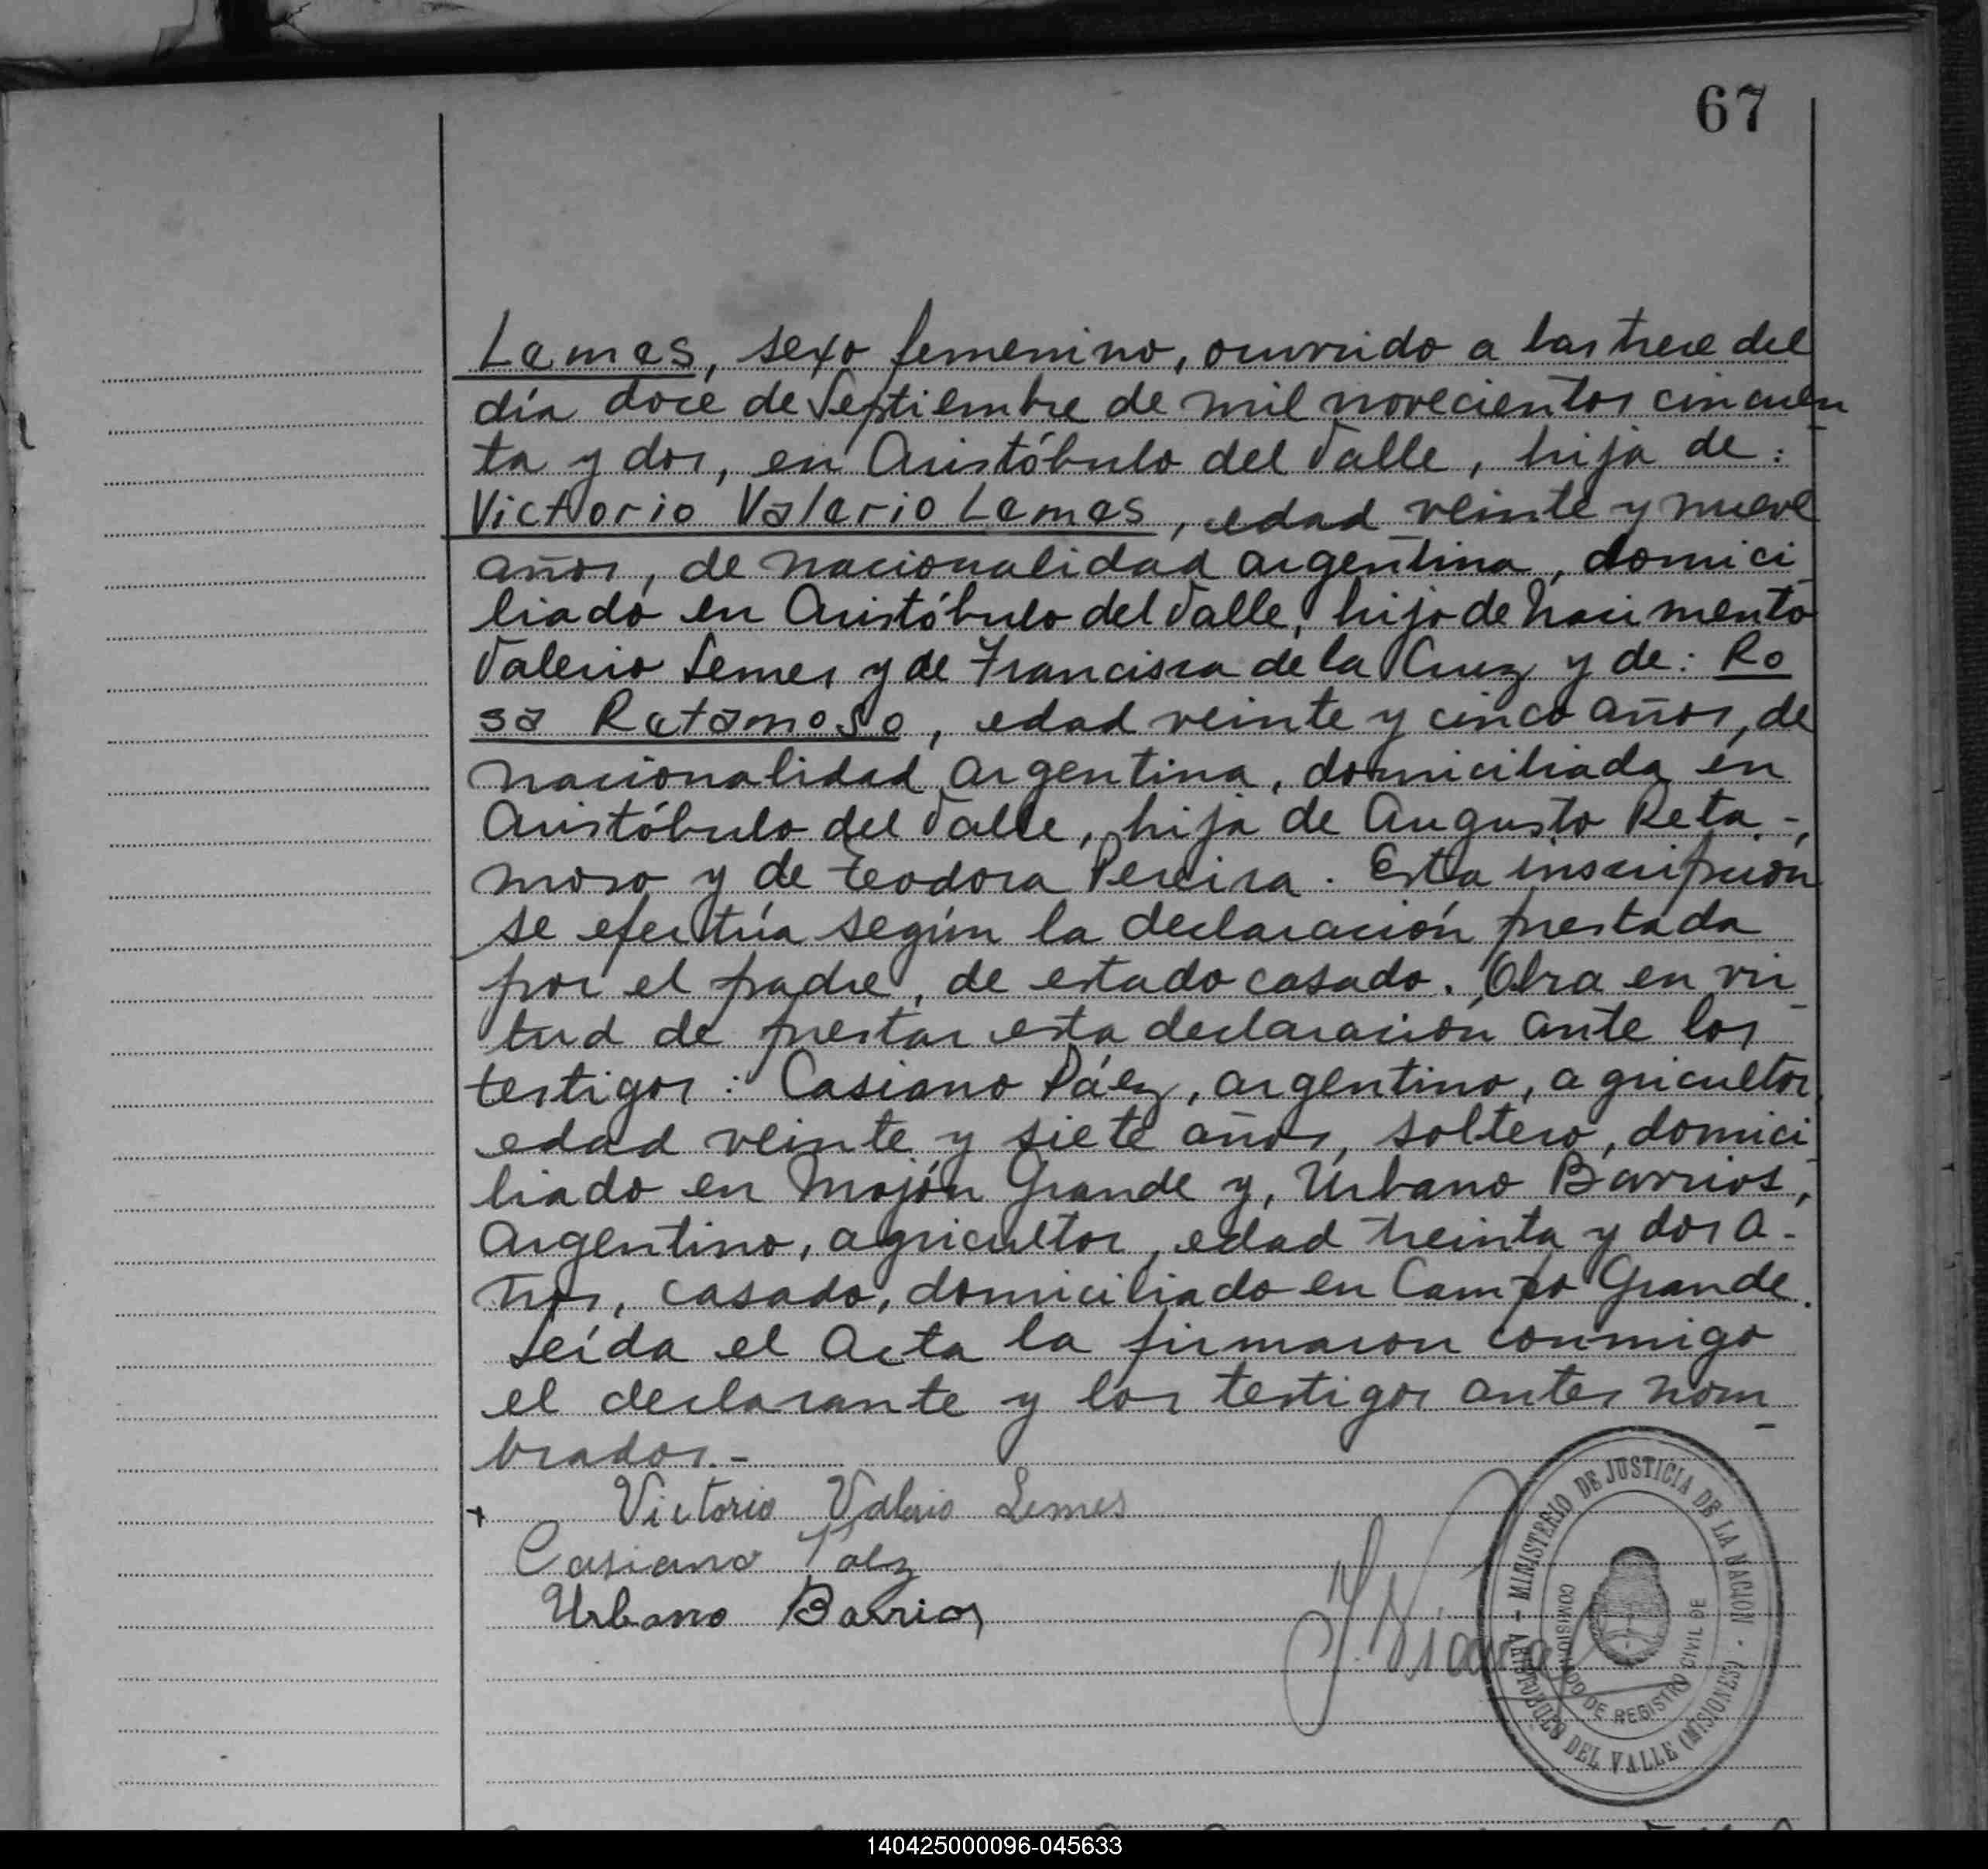 67
Lemes, sexo femenino, ocurrido a las trece del
día doce de Septiembre de mil novecientos cincuen
ta y dos, en Aristóbulo del Valle, hija de:
Victorio Valerio Lemes, edad veinte y nueve
años, de nacionalidad argentina, domici
liado en Aristóbulo del Valle, hijo de Nacimento
Valerio Lemes y de Francisca de la Cruz y de: Ro
sa Retamoso, edad veinte y cinco años, de
nacionalidad argentina, domiciliada en
Aristóbulo del Valle, hija de Augusto Reta-
moso y de Teodora Pereira. Esta inscripción
se efectúa según la declaración prestada
por el padre, de estado casado. Obra en vir
tud de prestar esta declaración ante los
testigos: Casiano Páez, argentino, agricultor,
edad veinte y siete años, soltero, domici
liado en Mojón Grande y, Urbano Barrios,
Argentino, agricultor, edad treinta y dos a-
ños, casado, domiciliado en Campo Grande.
Leída el Acta la firmaron conmigo
el declarante y los testigos antes nom
brados.-
+ Victorio Valerio Lemes
Casiano Paez
Urbano Barrios
MINISTERIO DE JUSTICIA DE LA NACION - ARISTOBULO DEL VALLE (MISIONES)
COMISIONADO DE REGISTRO CIVIL DE
140425000096-045633